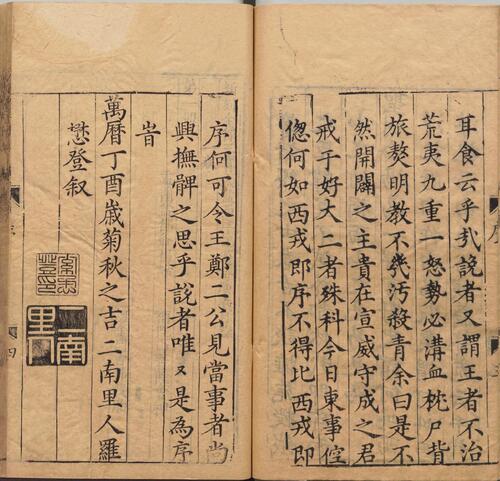 耳食云乎哉說者又謂王者不治
荒夷九重一怒勢必溝血枕尸背
旅獒明教不幾汚殺青余曰是不
然開闢之主貴在宣威守成之君
戒于好大二者殊科今日東事倥
偬何如西戎即序不得比西戎即
序何可令王鄭二公見當事者尚
興撫髀之思乎說者唯又是為序
旹
萬曆丁酉歲菊秋之吉二南里人羅
懋登叙
二南里人
序
四
序